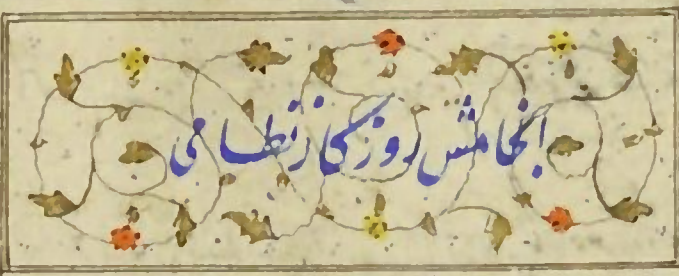 انجامش روزگار نظامی